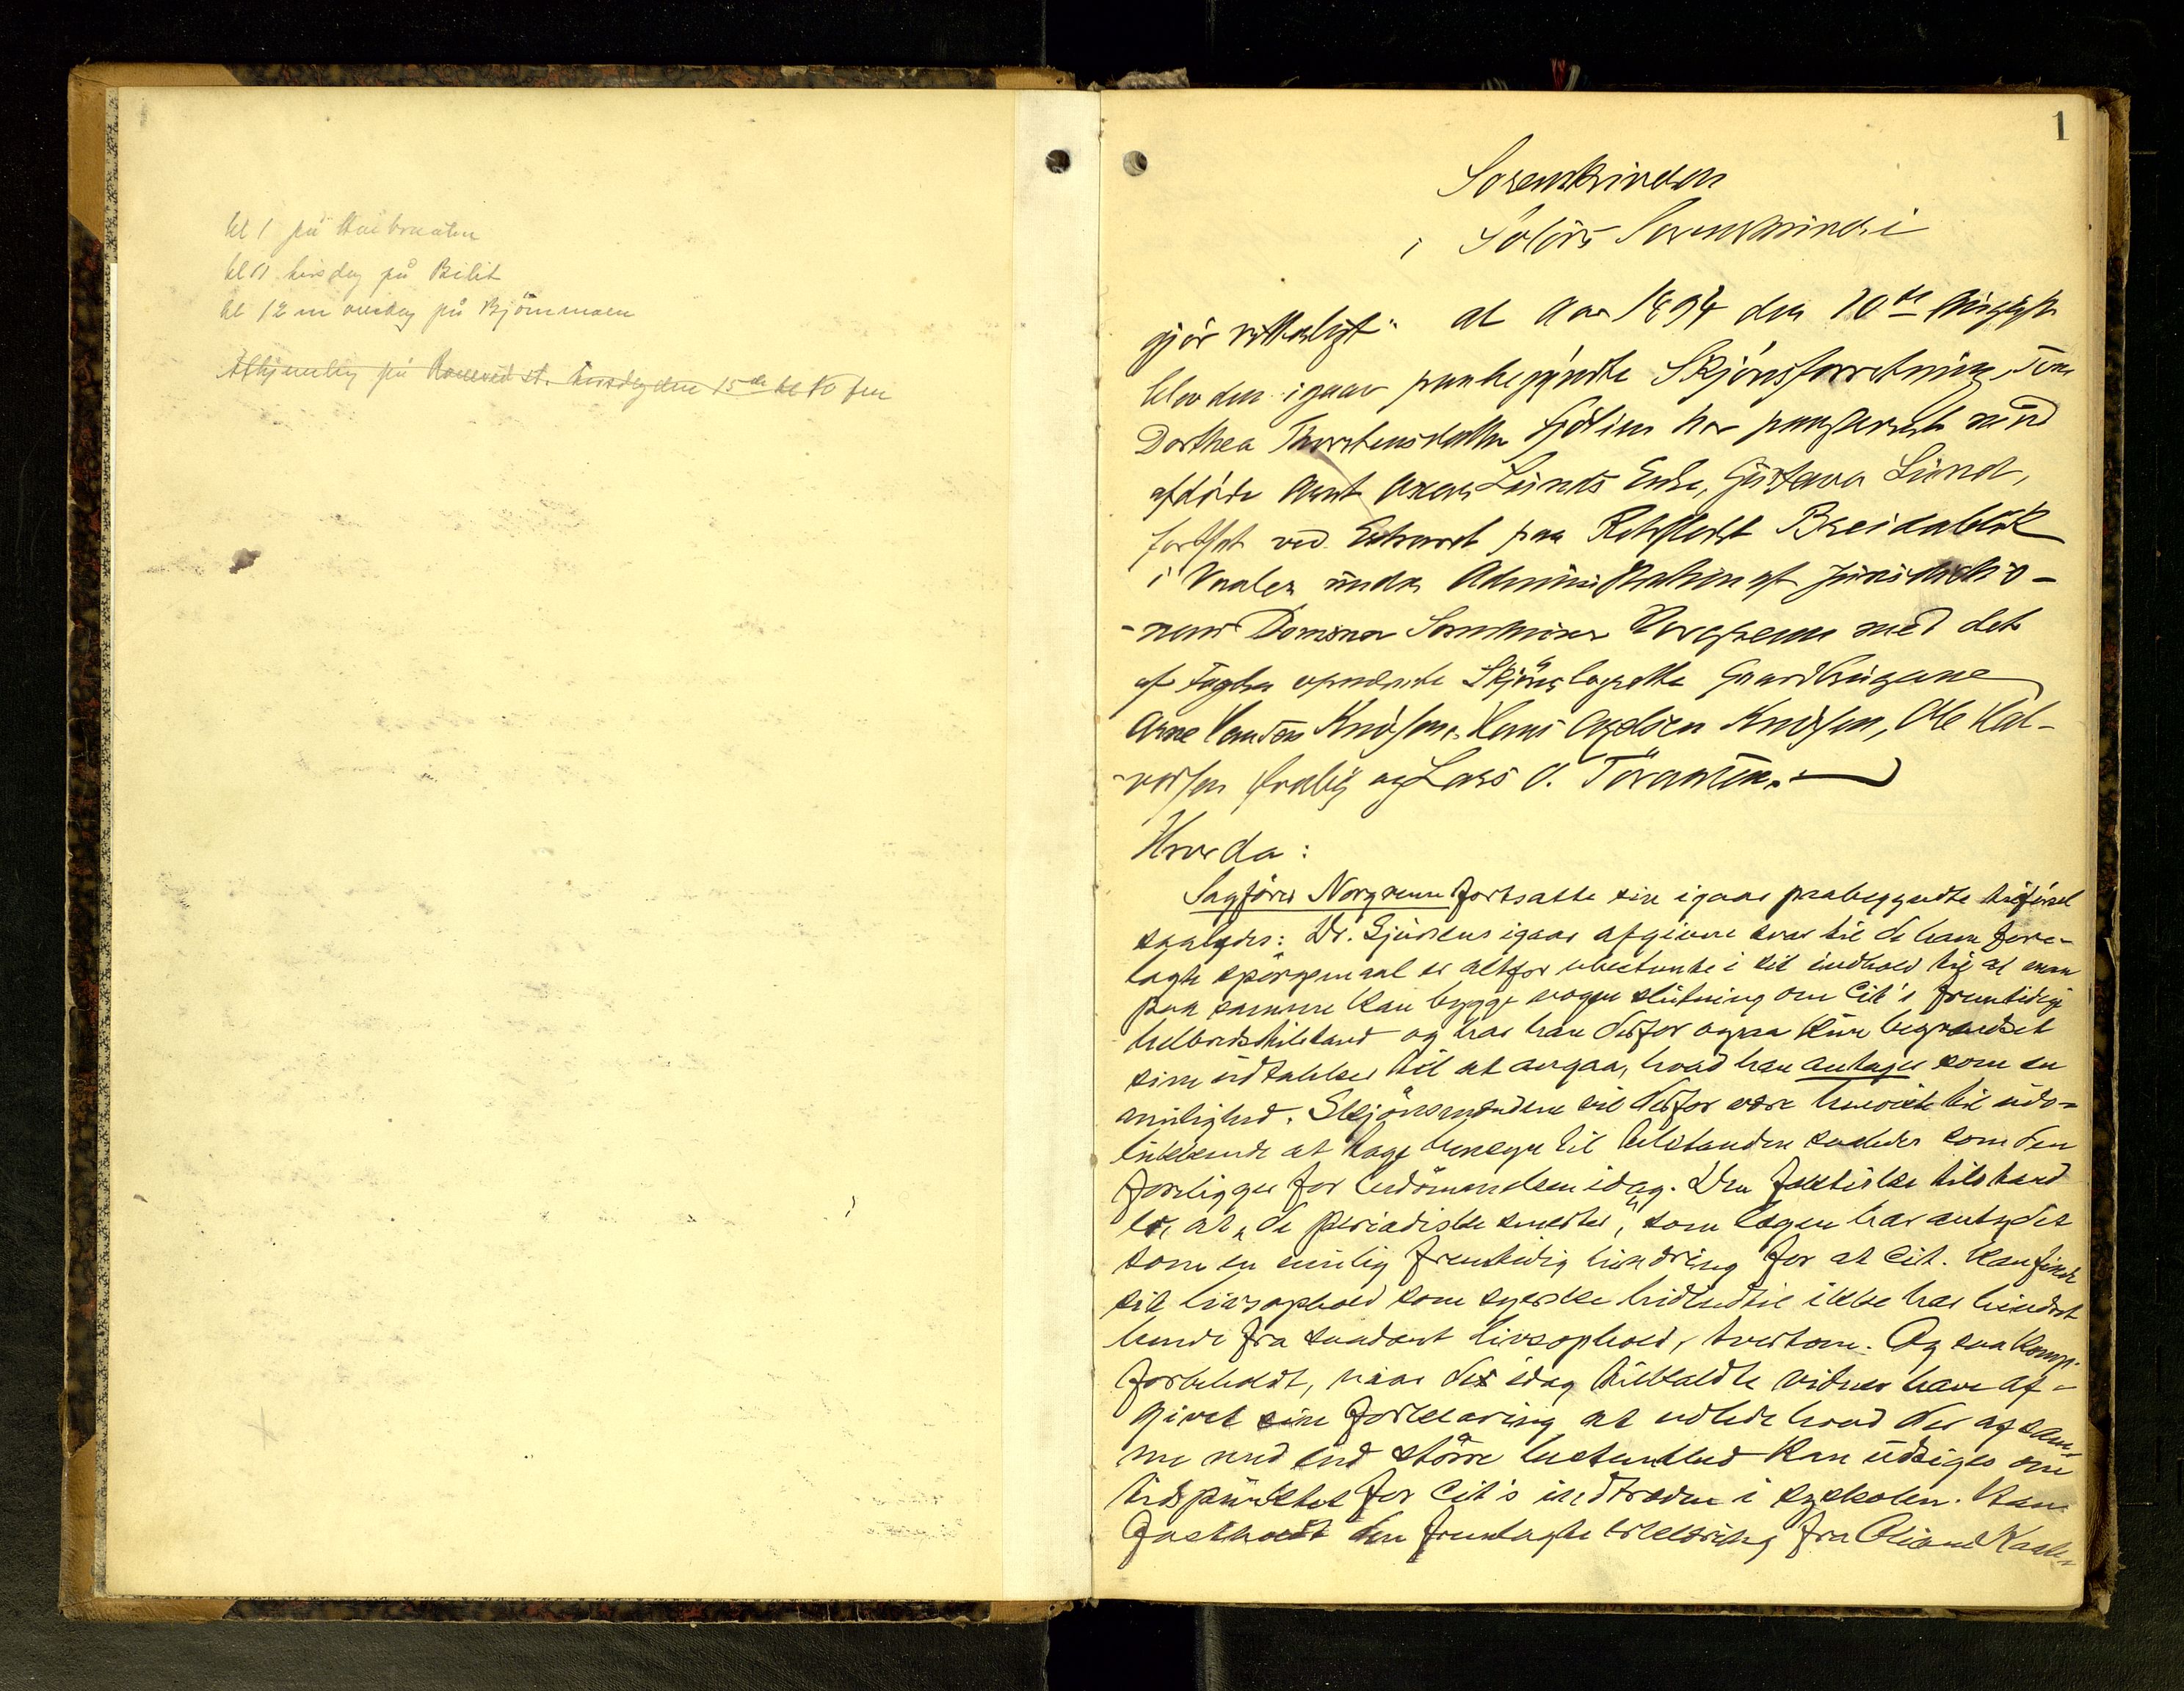 kl 1 på
kl 11 tirsdag på Bilit
kl 12 m onsdag på Björnmoen
på Roverud st. tirsdag den 15de kl 10 fm
1
Sorenskriveren
i Solørs Sorenskriveri
gjør vitterligt: at Aar 1894 den 10de August
blev den igaar paabegyndte Skjønsforretning, som
Dorthea Thorstensdatter Sjølien har paastevnet mod
afdøde Amt Lunds Enke, Gustava Lund,
fortsat ved Extraret paa Retsstedet Breidablik
i Vaaler under Administration af jurisdictio-
-nens Dommer Sorenskriver med det
af Fogden opnævnte Skjønslagrette Gaardbrugerne
Arne Knudsen, Hans Knudsen, Ole Hal-
-vorsen og Lars O.
Hvorda:
Sagfører Norgrenn fortsatte sin igaar paabegyndte tilførsel
saaledes: Dr. igaar afgivne svar til de ham fore-
lagte spørgsmaal er altfor ubestemte i sit indhold til at man
paa samme kan bygge nogen slutning om Cit's fremtidige
helbredstilstand og har han derfor ogsaa kun begrændset
sine udtalelser til at angaa, hvad han antager som en
mulighed. Skjønsmændene vil derfor være henvist til ude-
lukkende at tage hensyn til tilstanden saaledes som den
foreligger for bedømmelsen idag. Den faktiske tilstand
er, at "de periodiske smerter", som lægen har antydet
som en mulig fremtidig hindring for at Cit. kan finde
sit livsophold som syerske hidindtil ikke har hindret
hende fra saadant livsophold, tvertom. Og saa komp.
forbeholdt, naar de idag tilkaldte vidner have af-
givet sin forklaring at udlede hvad der af sam-
me med end større bestemthed kan udsiges om
tidspunktet for Cit's indtræden i syskolen. Kom.
fastholdt den fremlagte erklæring fra